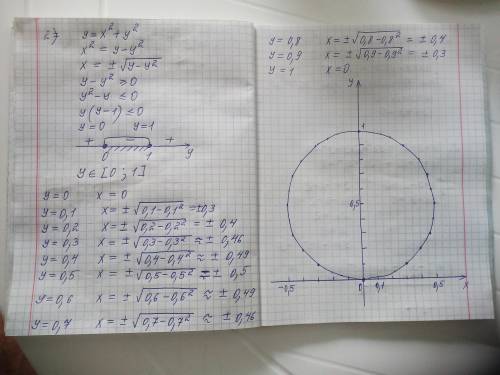 y = x² + y²
x² = y - y²
x = ± √(y - y²)
y - y² ≥ 0
y² - y ≤ 0
y (y - 1) ≤ 0
y = 0 y = 1
+ - +
0 1 y
y ∈ [0 ; 1]
y = 0 x = 0
y = 0,1 x = ± √(0,1 - 0,1²) = ± 0,3
y = 0,2 x = ± √(0,2 - 0,2²) = ± 0,4
y = 0,3 x = ± √(0,3 - 0,3²) ≈ ± 0,46
y = 0,4 x = ± √(0,4 - 0,4²) ≈ ± 0,49
y = 0,5 x = ± √(0,5 - 0,5²) = ± 0,5
y = 0,6 x = ± √(0,6 - 0,6²) ≈ ± 0,49
y = 0,7 x = ± √(0,7 - 0,7²) ≈ ± 0,46
y = 0,8 x = ± √(0,8 - 0,8²) = ± 0,4
y = 0,9 x = ± √(0,9 - 0,9²) = ± 0,3
y = 1 x = 0
y
1
0,5
-0,5 0 0,5 x